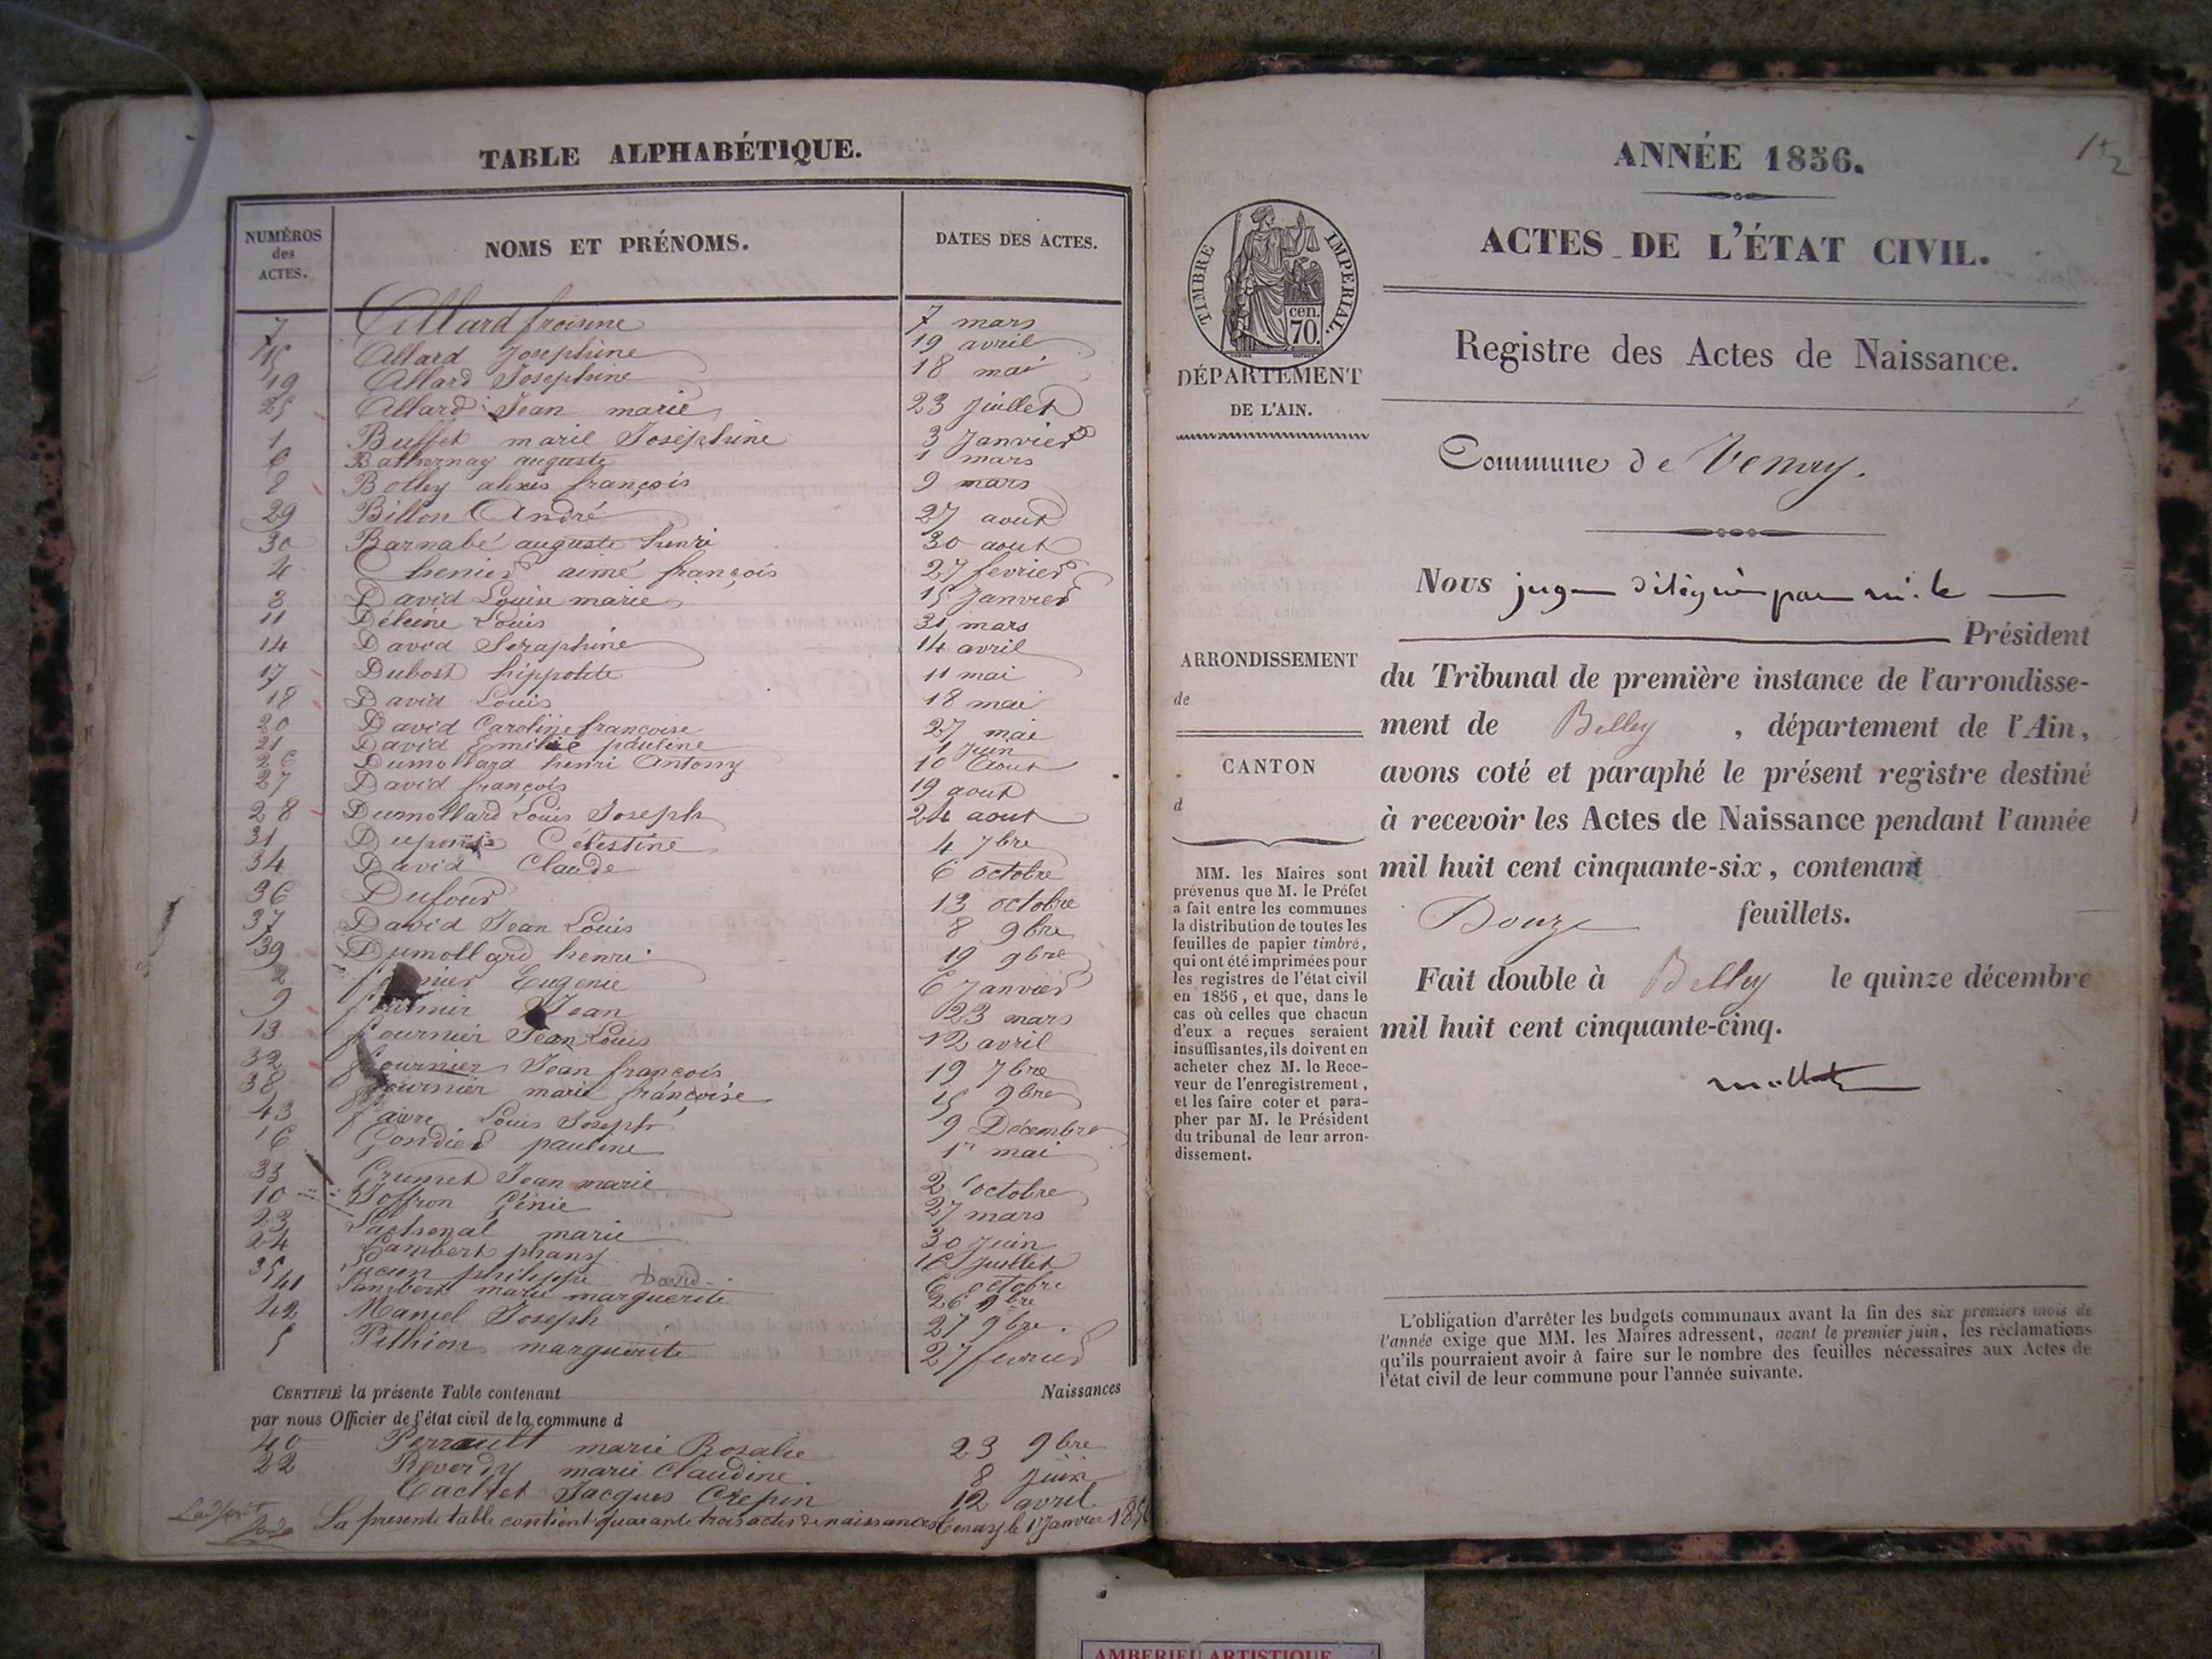 TABLE ALPHABÉTIQUE.
NUMÉROS des ACTES.
NOMS ET PRÉNOMS.
DATES DES ACTES.
7 Allard froisine 7 mars
15 Allard Josephine 19 avril
19 Allard Josephine 18 mai
25 Allard Jean marie 23 Juillet
1 Buffet marie Joséphine 3 Janvier
6 Bathernay auguste 1 mars
8 Bolley alexis françois 9 mars
29 Billon André 27 aout
30 Barnabé auguste henri 30 aout
4 Chenier aimé françois 27 fevrier
3 David Louise marie 15 Janvier
11 Déléine Louis 31 mars
14 David Seraphine 14 avril
17 Dubost hippolite 11 mai
18 David Louis 18 mai
20 David Caroline francoise 27 mai
21 David Emilie pauline 1 Juin
26 Dumollard henri Antony 10 Aout
27 David françois 19 aout
28 Dumollard Louis Joseph 24 aout
31 Célestine 4 7bre
34 David Claude 6 octobre
36 Dufour 13 octobre
37 David Jean Louis 8 9bre
39 Dumollard henri 19 9bre
2 Eugenie 6 Janvier
9 fournier Jean 23 mars
13 fournier Jean Louis 12 avril
32 fournier Jean françois 19 7bre
38 fournier marie françoise 15 9bre
43 faivre Louis Joseph 9 Décembre
16 Gondier pauline 1er mai
33 Grumet Jean marie 2 octobre
10 Joffron Génie 27 mars
23 Lachenal marie 30 Juin
24 Lambert phany 16 Juillet
35 Lucien philippe David 6 octobre
41 Lambert marie marguerite 26 9bre
42 Maniel Joseph 27 9bre.
5 Pithion marguerite 27 fevrier
CERTIFIÉ la présente Table contenant Naissances
par nous Officier de l'état civil de la commune d
40 Perrault marie Rosalie 23 9bre
22 Reverdy marie Claudine 8 Juin
Cachet Jacques Crepin 12 avril
La presente table contient quarante trois actes de naissances Cenasy le 1er Janvier
ANNÉE 1856.
ACTES DE L'ÉTAT CIVIL.
TIMBRE IMPERIAL.
cen.
70.
DÉPARTEMENT
DE L'AIN.
Registre des Actes de Naissance.
Commune de
ARRONDISSEMENT
de
CANTON
d
Nous juge délégué par m. le
Président
du Tribunal de première instance de l'arrondisse-
ment de Belley, département de l'Ain,
avons coté et paraphé le présent registre destiné
à recevoir les Actes de Naissance pendant l'année
mil huit cent cinquante-six, contenant
Douze feuillets.
Fait double à Belley le quinze décembre
mil huit cent cinquante-cinq.
MM. les Maires sont
prévenus que M. le Préfet
a fait entre les communes
la distribution de toutes les
feuilles de papier timbré,
qui ont été imprimées pour
les registres de l'état civil
en 1856, et que, dans le
cas où celles que chacun
d'eux a reçues seraient
insuffisantes, ils doivent en
acheter chez M. le Rece-
veur de l'enregistrement,
et les faire coter et para-
pher par M. le Président
du tribunal de leur arron-
dissement.
L'obligation d'arrêter les budgets communaux avant la fin des six premiers mois de
l'année exige que MM. les Maires adressent, avant le premier juin, les réclamations
qu'ils pourraient avoir à faire sur le nombre des feuilles nécessaires aux Actes de
l'état civil de leur commune pour l'année suivante.
AMBERIEU ARTISTIQUE